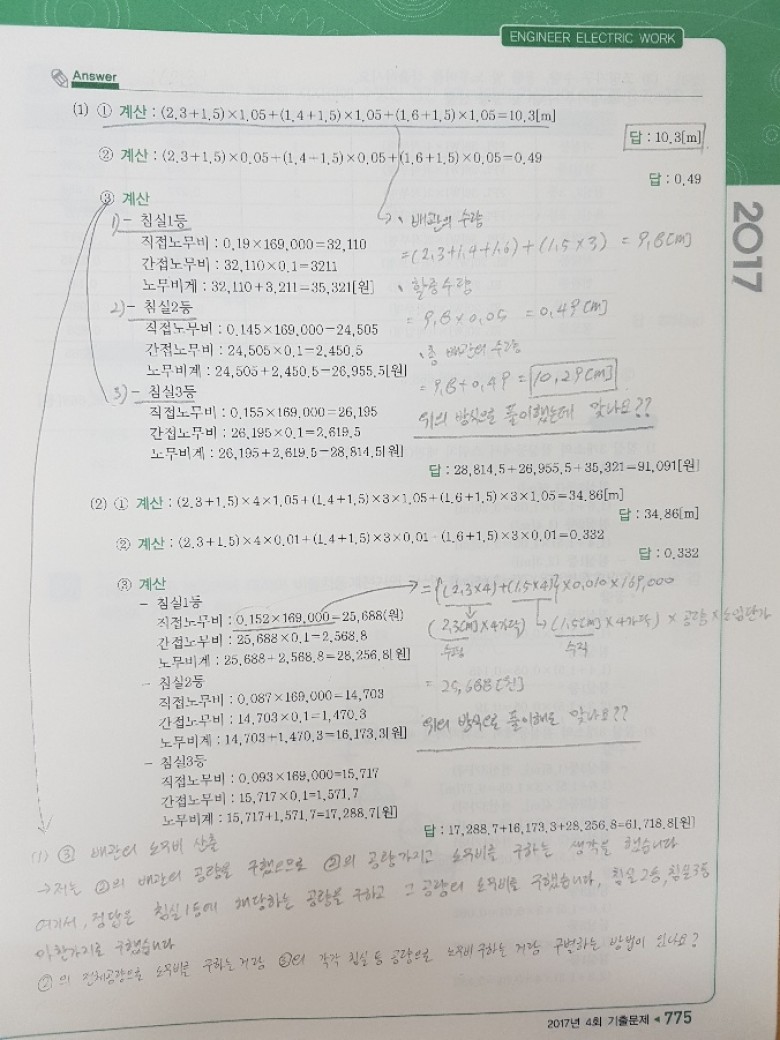 ENGINEER ELECTRIC WORK
Answer
(1) ① 계산 : (2.3+1.5)×1.05+(1.4+1.5)×1.05+(1.6+1.5)×1.05=10.3[m]
답 : 10.3[m]
② 계산 : (2.3+1.5)×0.05+(1.4+1.5)×0.05+(1.6+1.5)×0.05=0.49
답 : 0.49
2017
③ 계산
1) - 침실1등
직접노무비 : 0.19×169,000=32,110
간접노무비 : 32,110×0.1=3211
노무비계 : 32,110+3,211=35,321[원]
2) - 침실2등
직접노무비 : 0.145×169,000=24,505
간접노무비 : 24,505×0.1=2,450.5
노무비계 : 24,505+2,450.5=26,955.5[원]
3) - 침실3등
직접노무비 : 0.155×169,000=26,195
간접노무비 : 26,195×0.1=2,619.5
노무비계 : 26,195+2,619.5=28,814.5[원]
→ 、배관의 수량
=(2.3+1.4+1.6)+(1.5×3) = 9.8[m]
、할증수량
= 9.8×0.05 = 0.49[m]
、총 배관의 수량
= 9.8+0.49 = 10.29[m]
위의 방식으로 풀이했는데 맞나요??
답 : 28,814.5+26,955.5+35,321=91,091[원]
(2) ① 계산 : (2.3+1.5)×4×1.05+(1.4+1.5)×3×1.05+(1.6+1.5)×3×1.05=34.86[m]
답 : 34.86[m]
② 계산 : (2.3+1.5)×4×0.01+(1.4+1.5)×3×0.01+(1.6+1.5)×3×0.01=0.332
답 : 0.332
③ 계산
- 침실1등
직접노무비 : 0.152×169,000=25,688(원)
간접노무비 : 25,688×0.1=2,568.8
노무비계 : 25,688+2,568.8=28,256.8[원]
- 침실2등
직접노무비 : 0.087×169,000=14,703
간접노무비 : 14,703×0.1=1,470.3
노무비계 : 14,703+1,470.3=16,173.3[원]
- 침실3등
직접노무비 : 0.093×169,000=15,717
간접노무비 : 15,717×0.1=1,571.7
노무비계 : 15,717+1,571.7=17,288.7[원]
→ ={(2.3×4)+(1.5×4)}×0.010×169,000
(2.3[m]×4가닥) (1.5[m]×4가닥) × 공량 × 노임단가
수평 수직
= 25,688[원]
위의 방식으로 풀이해도 맞나요??
답 : 17,288.7+16,173.3+28,256.8=61,718.8[원]
(1) ③ 배관의 노무비 산출
→저는 ②의 배관의 공량을 구했으므로 ②의 공량가지고 노무비를 구하는 생각을 했습니다
여기서, 정답은 침실1등에 해당하는 공량을 구하고 그 공량의 노무비를 구했습니다, 침실2등, 침실3등
마찬가지로 구했습니다
②의 전체공량으로 노무비를 구하는거랑 ③의 각각 침실등 공량으로 노무비 구하는거랑 구별하는 방법이 있나요?
2017년 4회 기출문제 ◂ 775